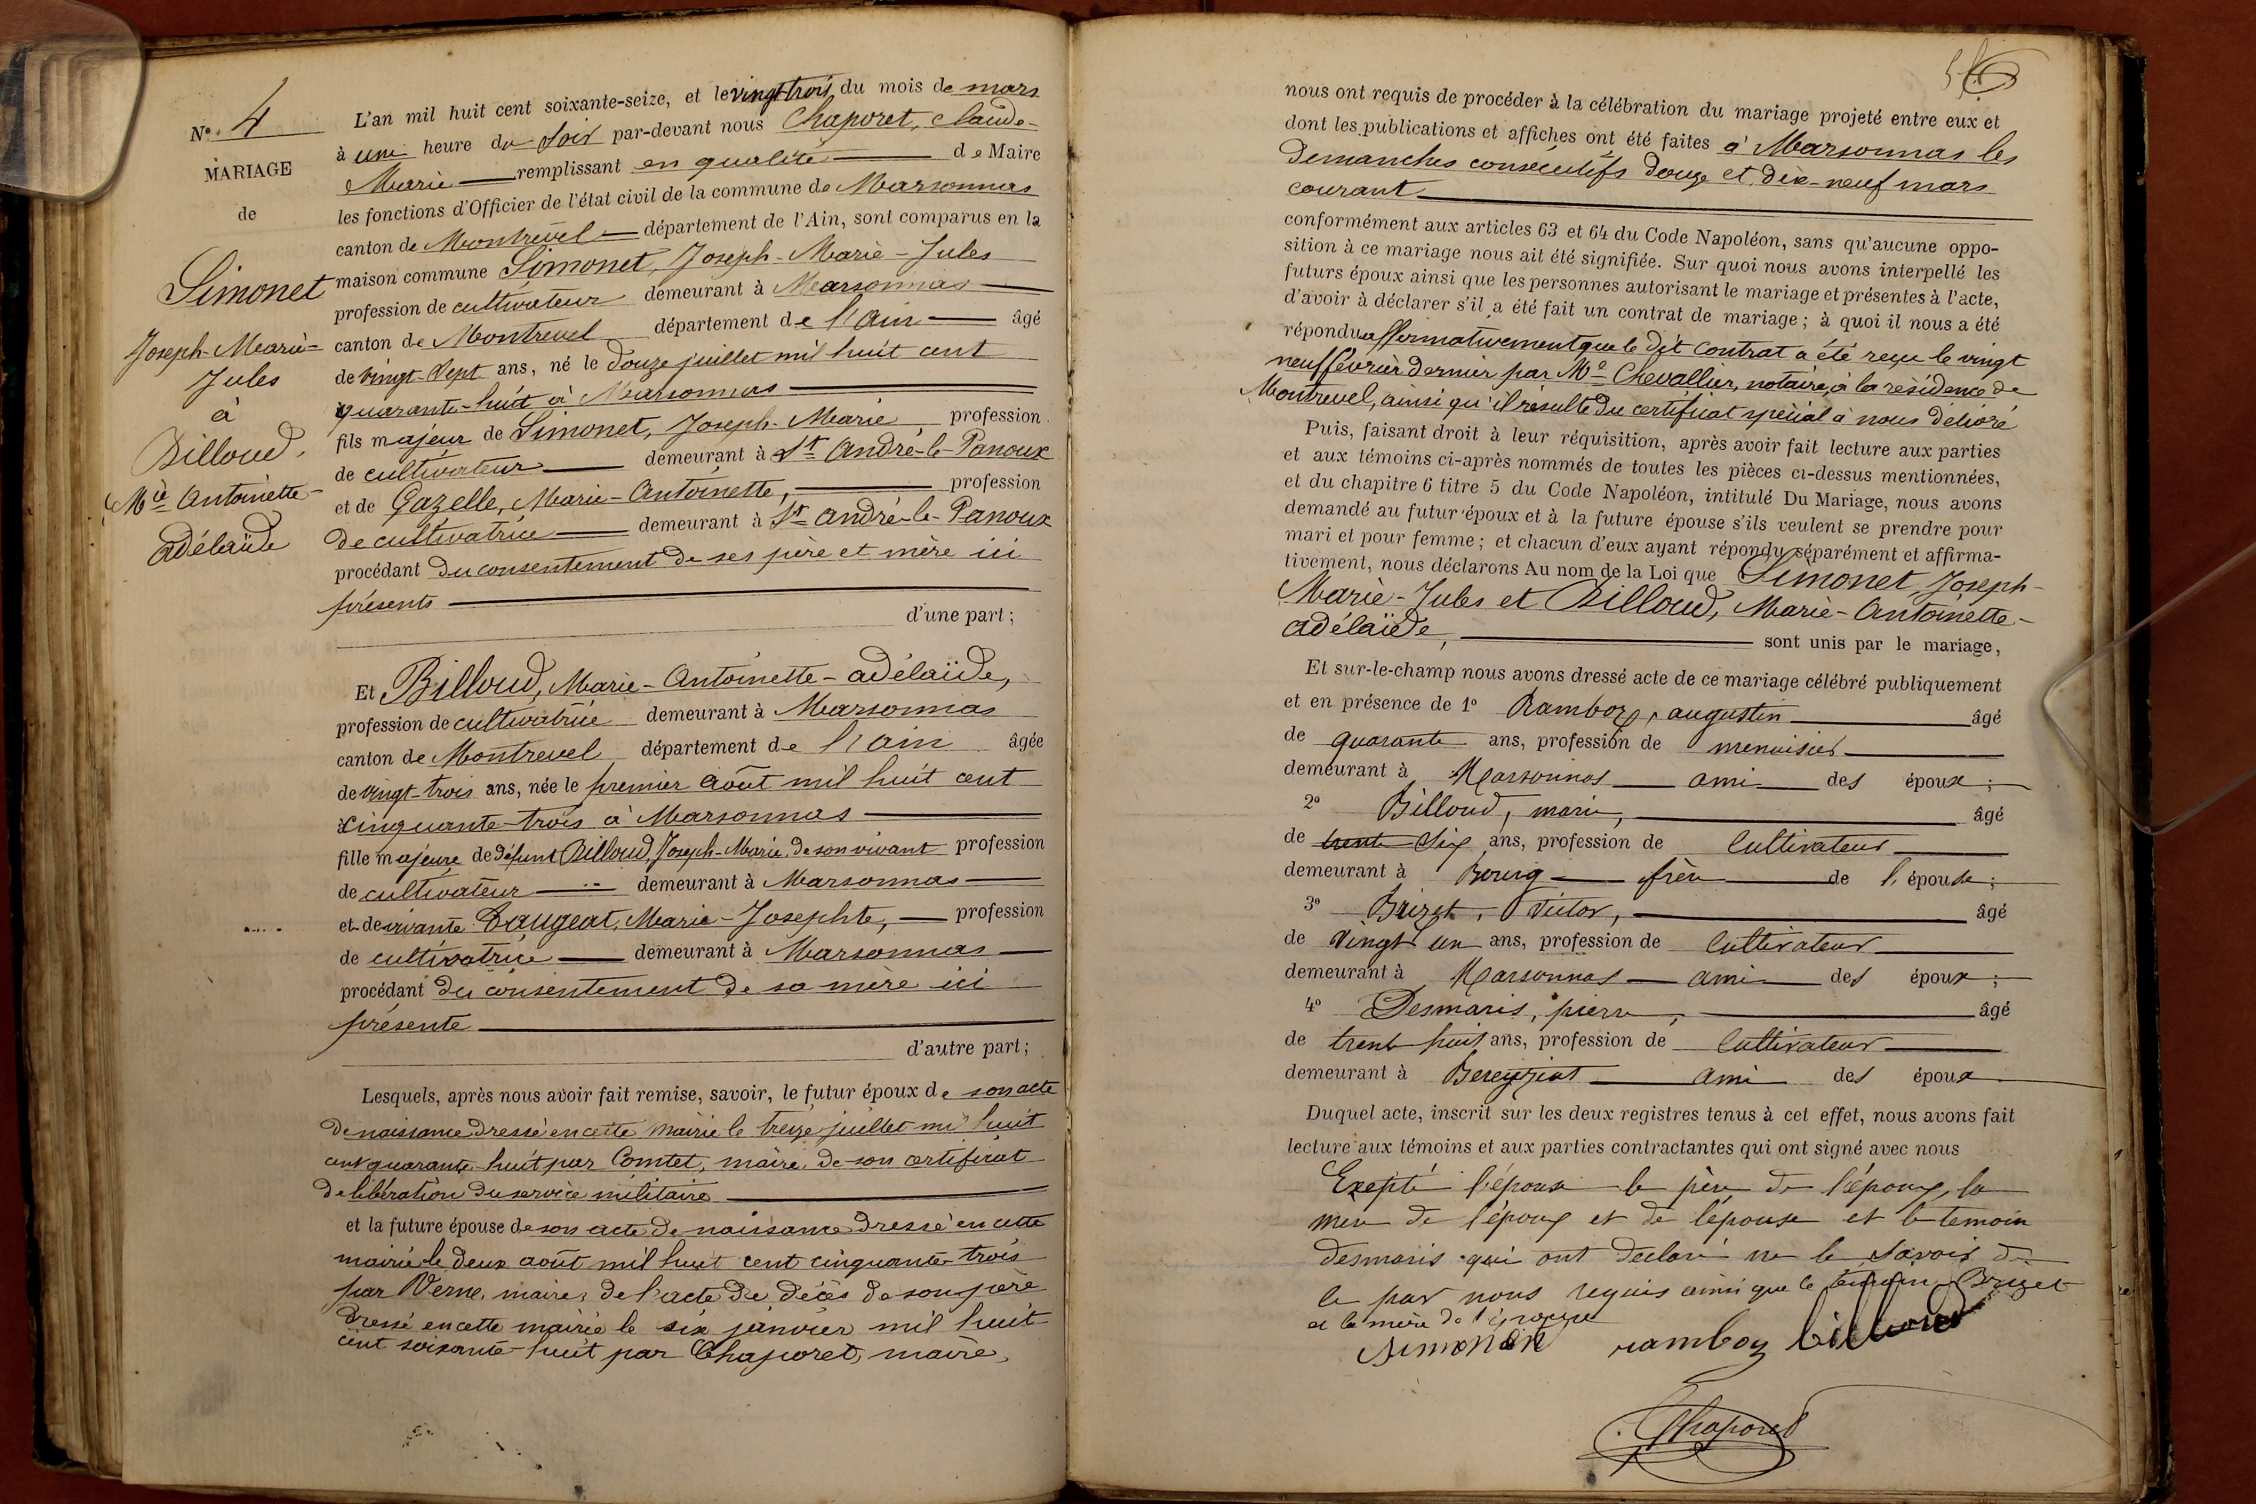 N° 4
MARIAGE
de
Simonet
Joseph-Marie-
Jules
à
Billoud,
Mie Antoinette-
adélaïde
L'an mil huit cent soixante-seize, et le vingt-trois du mois de mars
à une heure du soir par-devant nous Chaporet, claude-
Marie remplissant en qualité de Maire
les fonctions d'Officier de l'état civil de la commune de Marsonnas
canton de Montrevel département de l'Ain, sont comparus en la
maison commune Simonet, Joseph-Marie-Jules
profession de cultivateur demeurant à Marsonnas
canton de Montrevel département de l'Ain âgé
de vingt-sept ans, né le douze juillet mil huit cent
quarante-huit à Marsonnas
fils majeur de Simonet, Joseph-Marie, profession
de cultivateur demeurant à St André-le-Panoux
et de Gazelle, Marie-Antoinette, profession
de cultivatrice demeurant à St André-le-Panoux
procédant du consentement de ses père et mère ici
présents
d'une part;
Et Billoud, Marie-Antoinette-adélaïde,
profession de cultivatrice demeurant à Marsonnas
canton de Montrevel département de l'ain âgée
de vingt-trois ans, née le premier août mil huit cent
cinquante-trois à Marsonnas
fille majeure de défunt Billoud, Joseph-Marie, de son vivant profession
de cultivateur demeurant à Marsonnas
et de vivante Laugeat, Marie-Josephte, profession
de cultivatrice demeurant à Marsonnas
procédant du consentement de sa mère ici
présente
d'autre part;
Lesquels, après nous avoir fait remise, savoir, le futur époux de son acte
de naissance dressé en cette mairie le treize juillet mil huit
cent quarante-huit par Comtet, maire, de son certificat
de libération du service militaire
et la future épouse de son acte de naissance dressé en cette
mairie le deux août mil huit cent cinquante-trois
par Verne, maire, de l'acte de décès de son père
dressé en cette mairie le six janvier mil huit
cent soixante-huit par Chaporet, maire,
nous ont requis de procéder à la célébration du mariage projeté entre eux et
dont les publications et affiches ont été faites à Marsonnas les
demanches consécutifs douze et dix-neuf mars
courant
conformément aux articles 63 et 64 du Code Napoléon, sans qu'aucune oppo-
sition à ce mariage nous ait été signifiée. Sur quoi nous avons interpellé les
futurs époux ainsi que les personnes autorisant le mariage et présentes à l'acte,
d'avoir à déclarer s'il a été fait un contrat de mariage; à quoi il nous a été
répondu affermativement que le dit contrat a été reçu le vingt
neuf février dernier par Me Chevallier, notaire, à la résidence de
Montrevel, ainsi qu'il résulte du certificat spécial à nous délivré
Puis, faisant droit à leur réquisition, après avoir fait lecture aux parties
et aux témoins ci-après nommés de toutes les pièces ci-dessus mentionnées,
et du chapitre 6 titre 5 du Code Napoléon, intitulé Du Mariage, nous avons
demandé au futur époux et à la future épouse s'ils veulent se prendre pour
mari et pour femme; et chacun d'eux ayant répondu séparément et affirma-
tivement, nous déclarons Au nom de la Loi que Simonet, Joseph-
Marie-Jules et Billoud, Marie-Antoinette-
adélaïde, sont unis par le mariage,
Et sur-le-champ nous avons dressé acte de ce mariage célébré publiquement
et en présence de 1° Ramboz, augustin âgé
de quarante ans, profession de menuisier
demeurant à Marsonnas ami des époux;
2° Billoud, marie, âgé
de trente six ans, profession de Cultivateur
demeurant à Bourg frère de l'épouse;
3° Brizet, Victor, âgé
de vingt un ans, profession de Cultivateur
demeurant à Marsonnas ami des époux;
4° Desmaris, pierre, âgé
de trent huit ans, profession de Cultivateur
demeurant à Bereyziat ami des époux
Duquel acte, inscrit sur les deux registres tenus à cet effet, nous avons fait
lecture aux témoins et aux parties contractantes qui ont signé avec nous
Exepté l'épouse le père de l'époux, la
mere de l'époux et de l'épouse et le temoin
desmaris qui ont déclaré ne le savoir de
ce par nous requis ainsi que le témoin Brizet
et la mère de l'épouse
simonet ramboz billoud
Chaporet